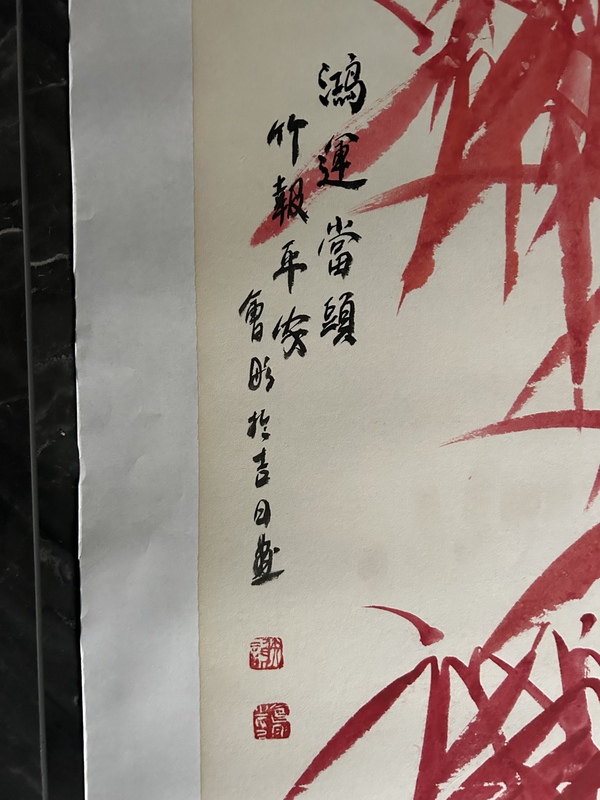 鴻運當頭
竹報平安
於吉日畫